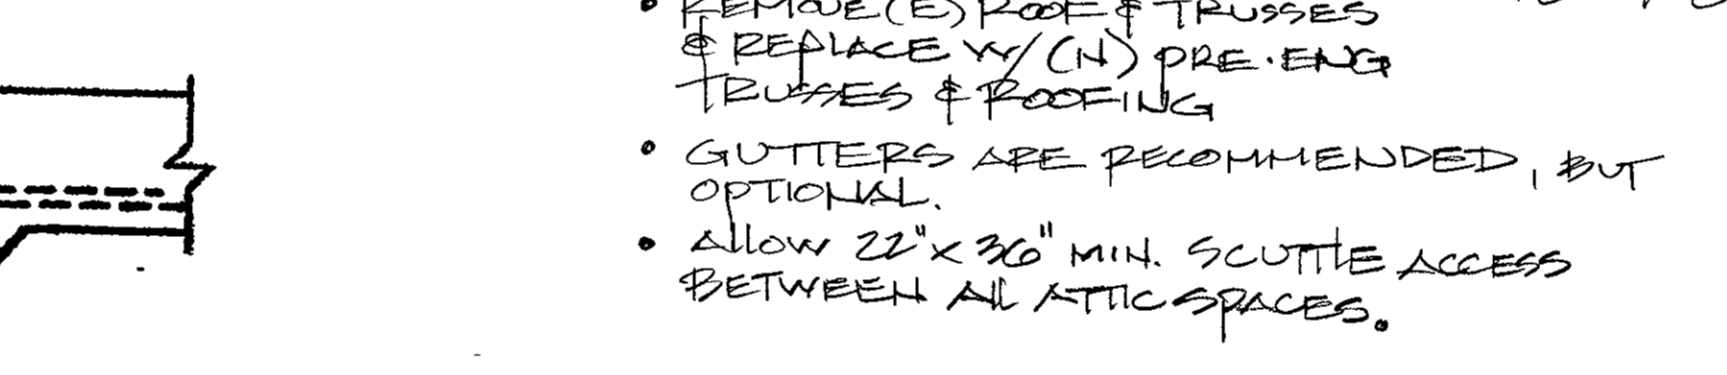 • REMOVE (E) ROOF & TRUSSES
& REPLACE W/ (N) PRE-ENG
TRUSSES & ROOFING
• GUTTERS ARE RECOMMENDED, BUT
OPTIONAL.
• Allow 22" x 36" MIN. SCUTTLE ACCESS
BETWEEN All ATTIC SPACES.